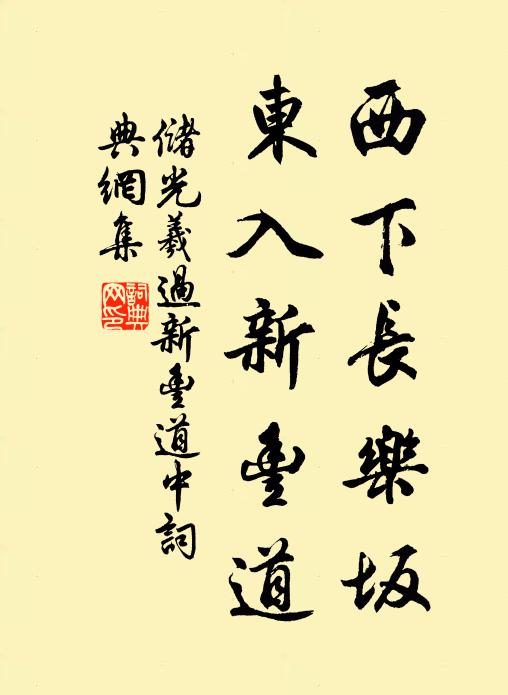 西下長樂坂
東入新豐道
儲光羲過新豐道中詞
典網集
詞典网印